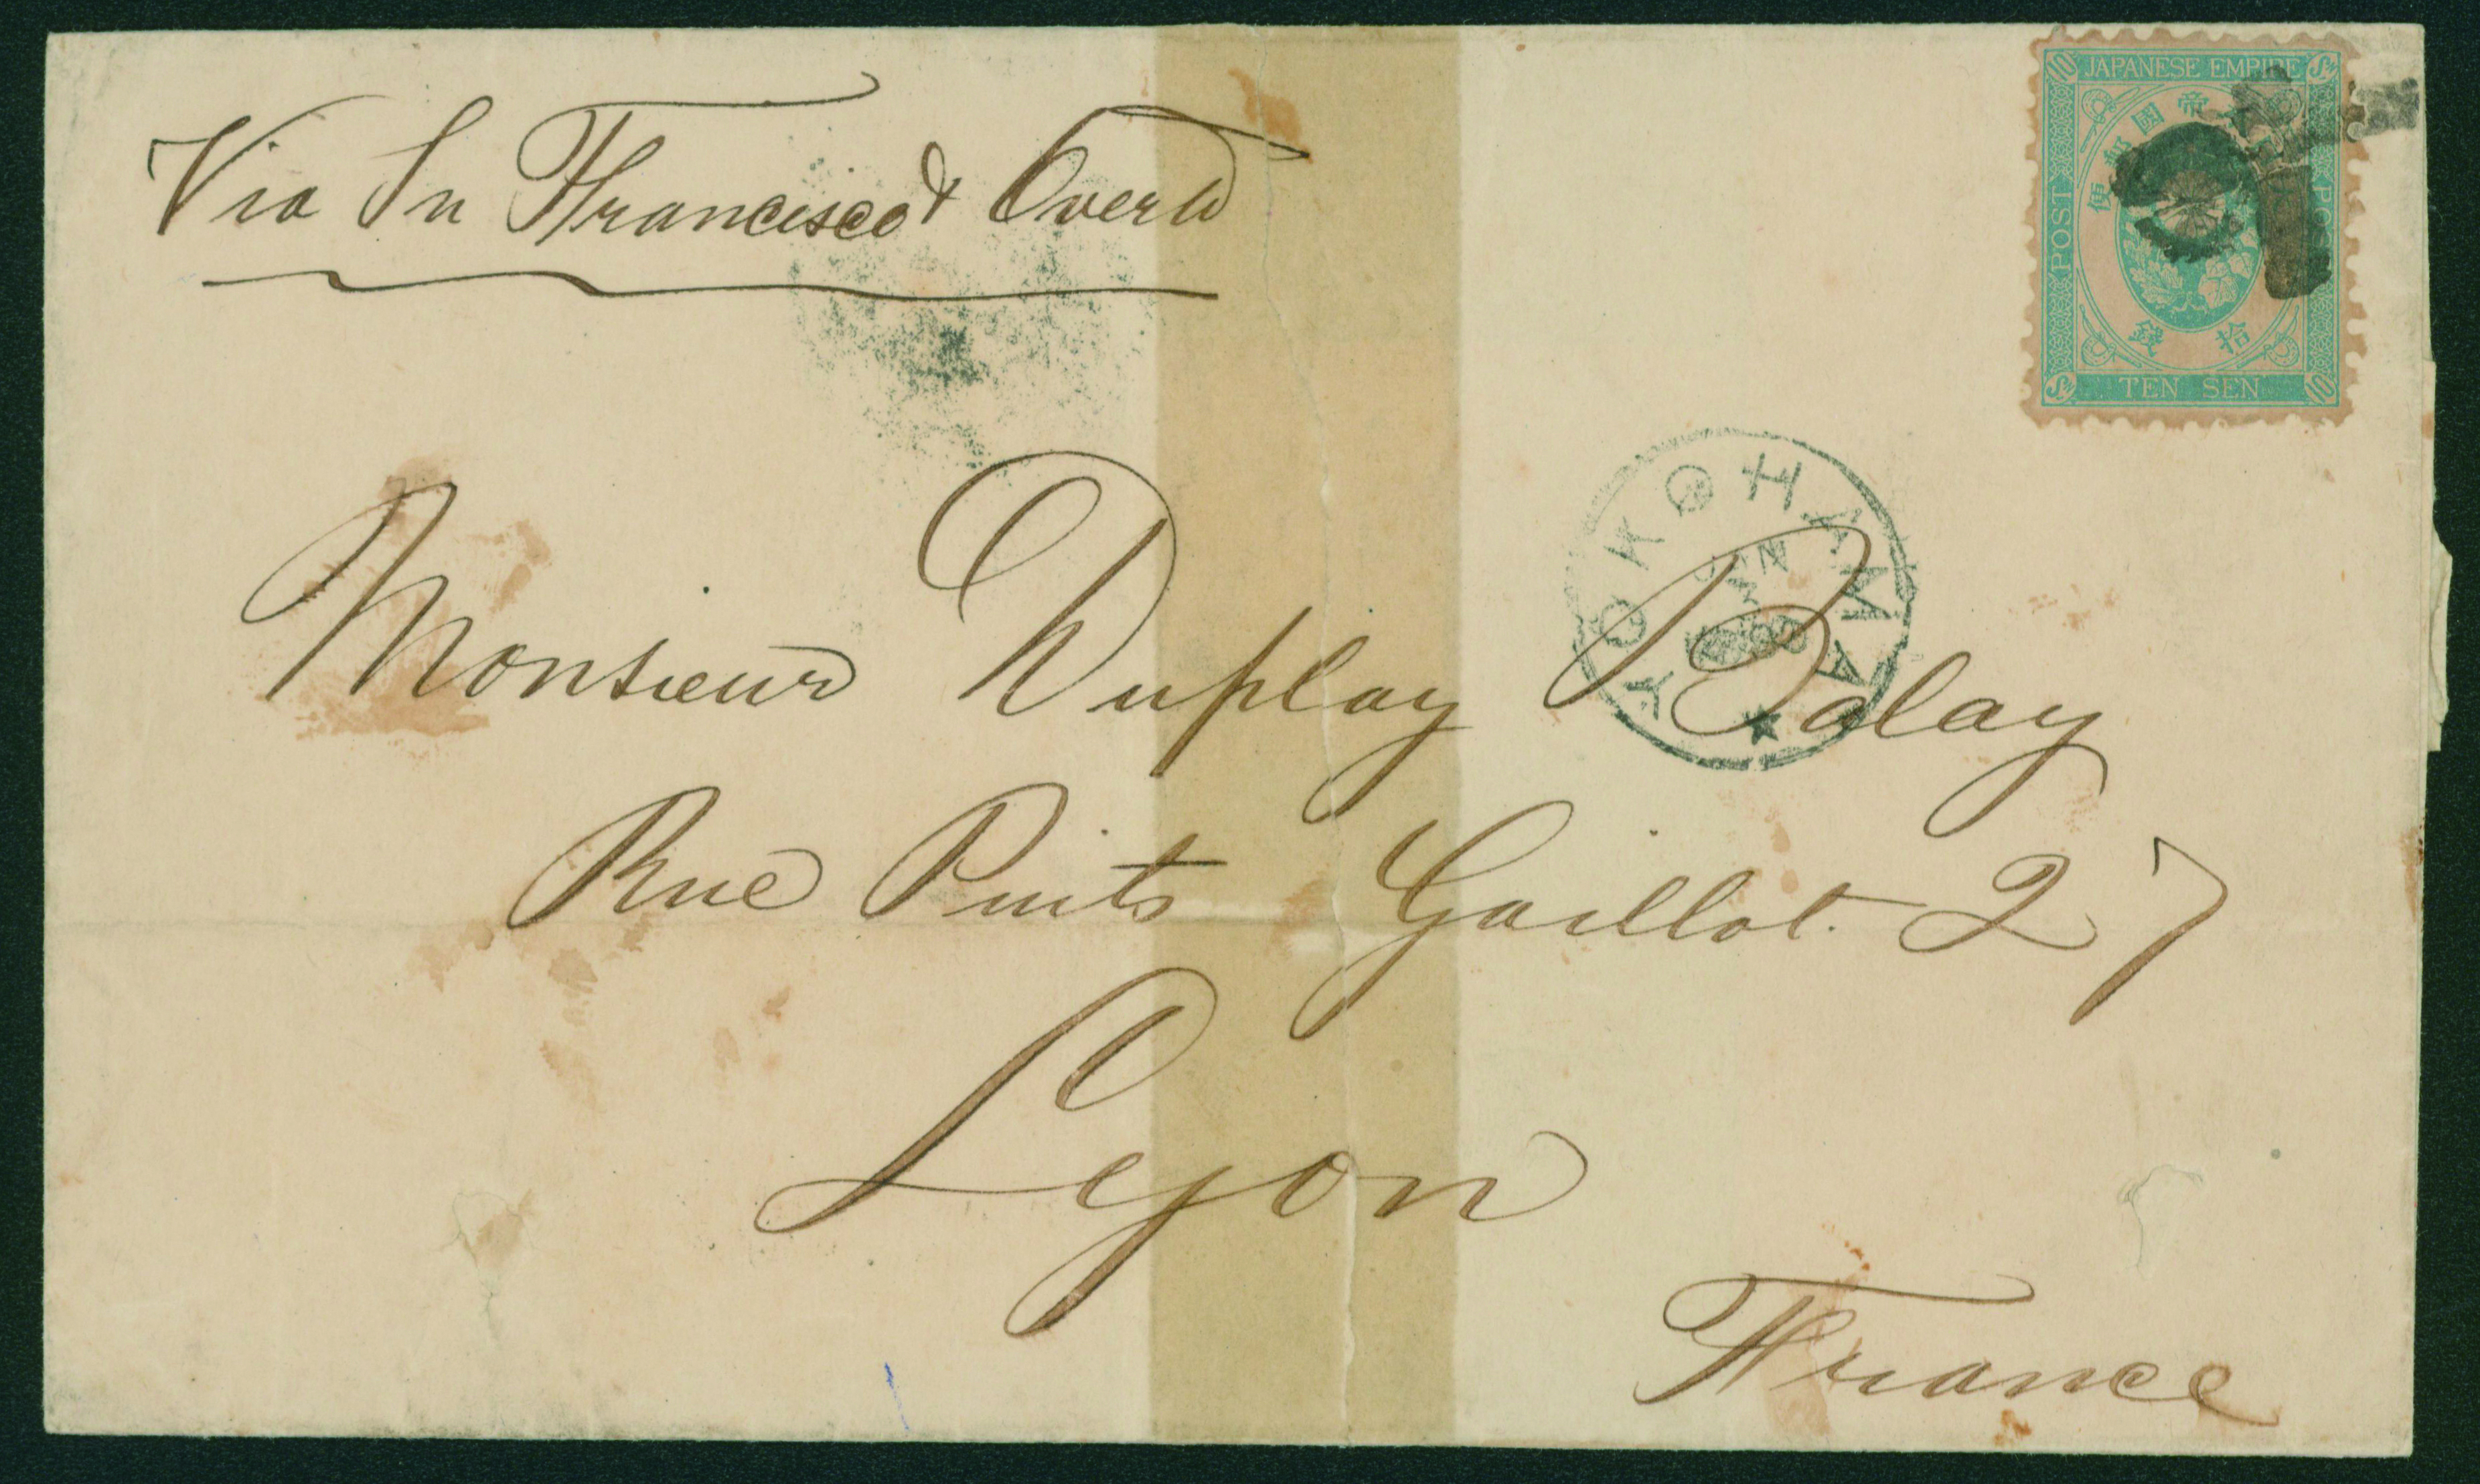 Via Sn Francisco & Overld
JAPANESE EMPIRE
帝國郵便
POST
拾錢
TEN SEN
10
YOKOHAMA
JUN
3
Monsieur Duplay Balay
Rue Puits Gaillot. 27
Lyon
France